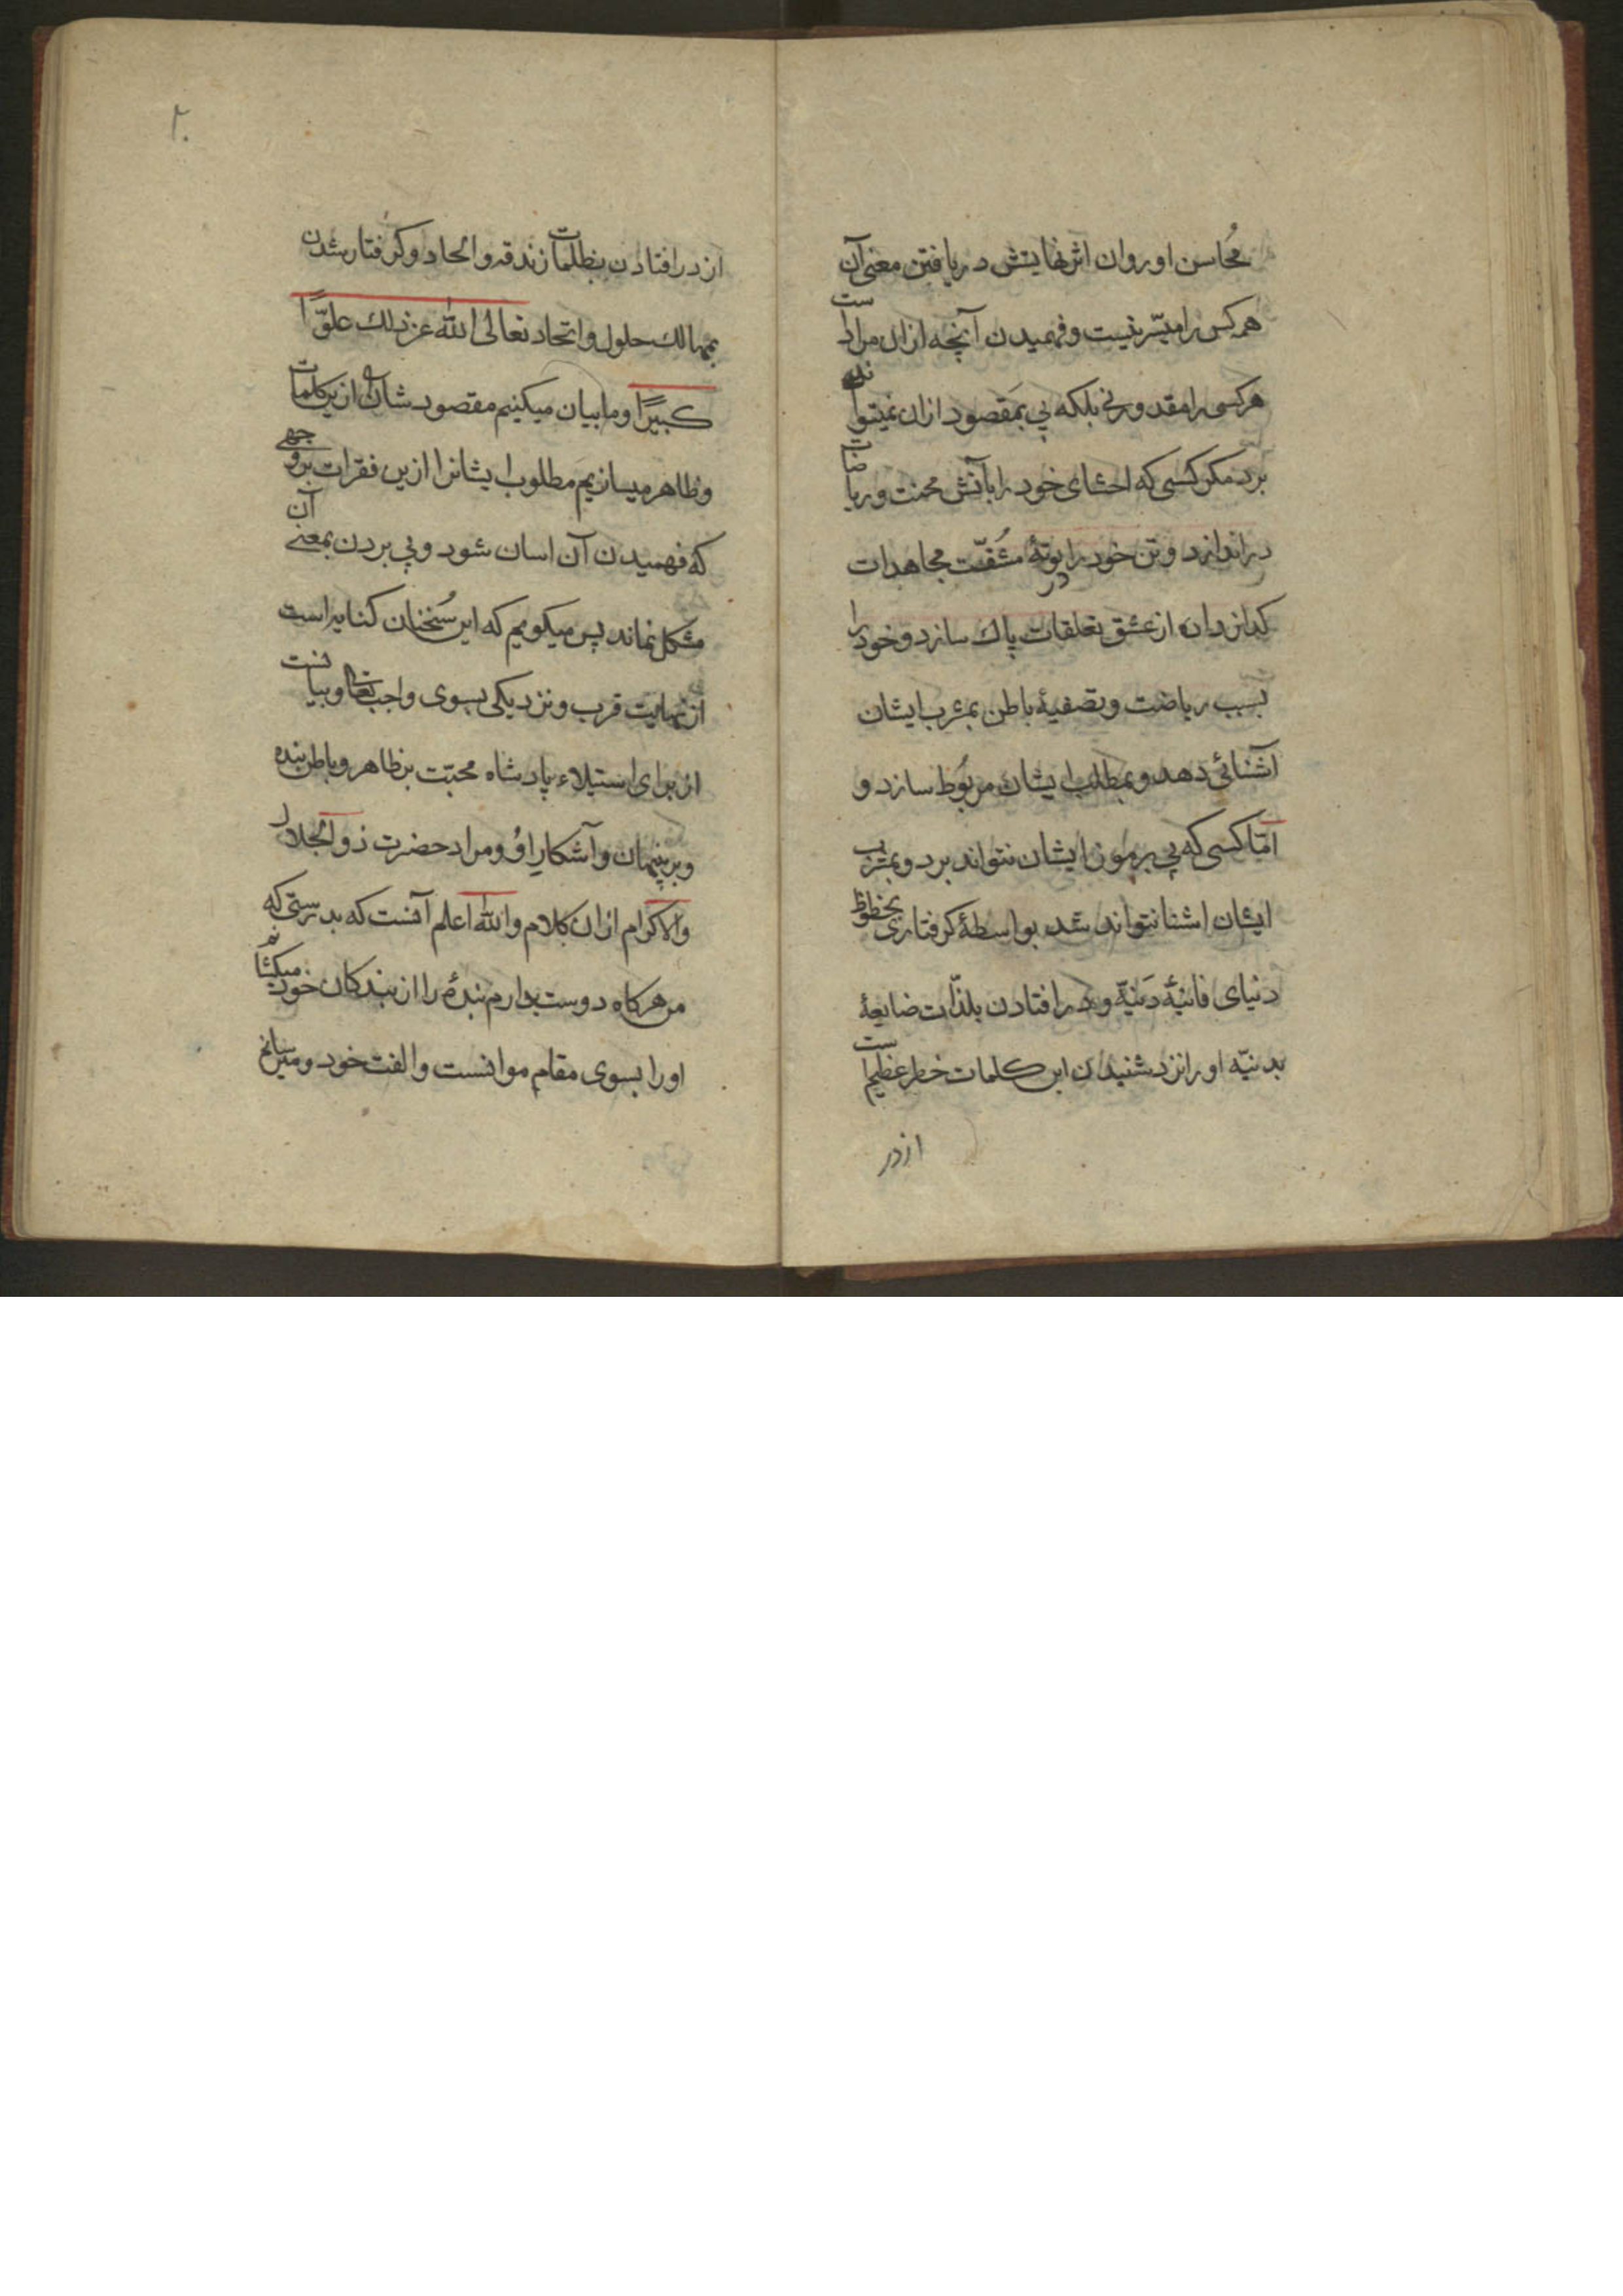 محاسن او روان اثر نهایتش دریافتن معنی آن
همه کس را میسّر نیست و فهمیدن آنچه ازان مرادست
هرکسی را مقدور نی بلکه پی بمقصود ازان نمیتواند
برد مکر کسی که احشای خود را بآتش محنت و ریاضات
دراندازد و تن خود را در بوتهٔ مشقّت مجاهدات
کدازد از عشق تعلقات پاك سازد و خود را
بسبب ریاضت و تصفیهٔ باطن بمشرب ایشان
آشنائی دهد و بمطلب ایشان مربوط سازد و
امّا کسی که پی برموز ایشان نتواند برد و بمشرب
ایشان اشنا نتواند شد بواسطهٔ کرفتاری بحظوظ
دنیای فانیهٔ دَنیّه و در افتادن بلذّات ضایعهٔ
بدنیّه او را نزد شنیدن این کلمات خطر عظیم است
ازدر
۲۰
از در افتادن بظلمات زندقه و الحاد و کرفتار شدن
بمهالك حلول و اتحاد تعالی الله عن ذلك علوًّا
کبیرًا و ما بیان میکنیم مقصود شان ازین کلمات
و ظاهر میسازیم مطلوب ایشانرا ازین فقرات بروجهی
که فهمیدن آن اسان شود و پی بردن بمعنی آن
مشکل نماند پس میکویم که این سُخنان کنایه است
از نهایت قرب و نزدیکی بسوی واجب تعالی و بیانست
از برای استیلاء پادشاه محبّت بر ظاهر و باطن بنده
و بر پنهان و آشکار او و مراد حضرت ذو الجلال
والاکرام ازان کلام والله اعلم آنست که بدرستی که
من هرکاه دوست بدارم بندهٔ را از بندکان خود میکشانم
او را بسوی مقام موانست و الفت خود و میرسانم